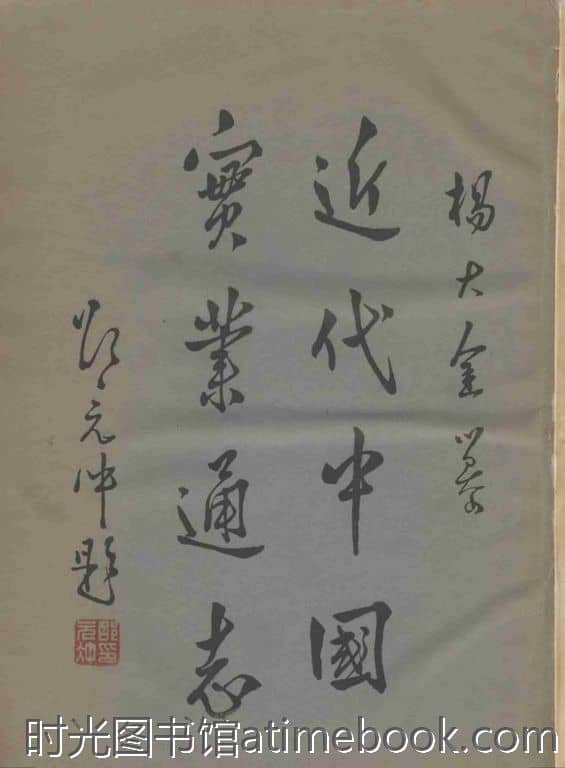 楊大金纂
近代中國
實業通志
邵元冲題
邵元冲印
时光图书馆atimebook.com